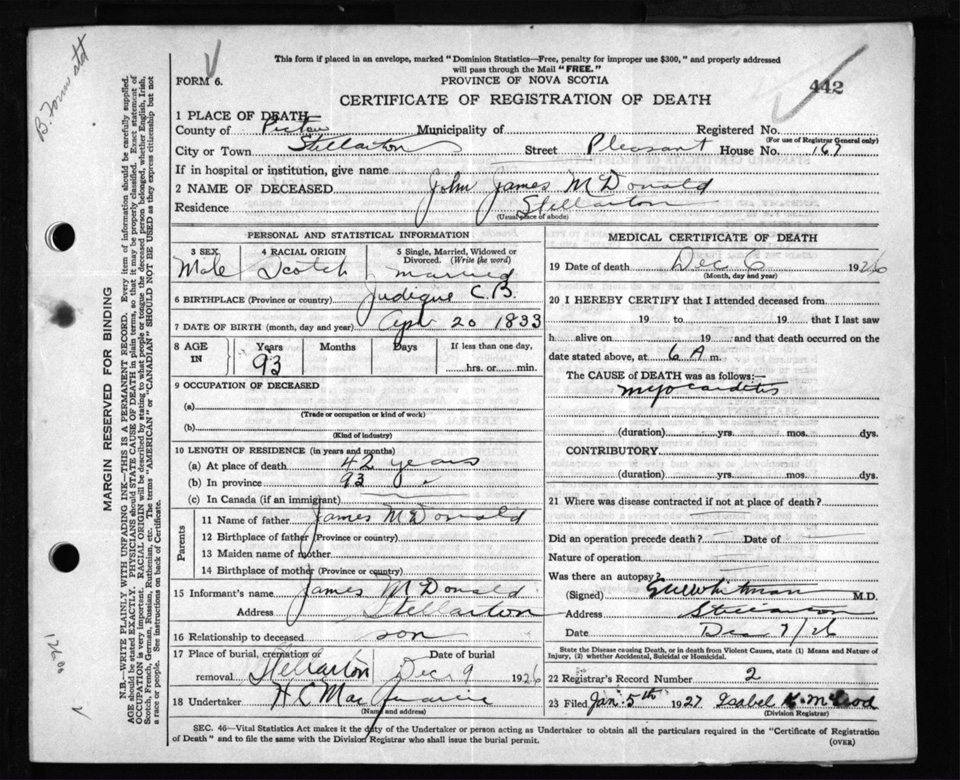 This form if placed in an envelope, marked "Dominion Statistics—Free, penalty for improper use $300," and properly addressed
will pass through the Mail "FREE."
FORM 6.
PROVINCE OF NOVA SCOTIA
442
CERTIFICATE OF REGISTRATION OF DEATH
1 PLACE OF DEATH
County of Pictou Municipality of Registered No.
(For use of Registrar General only)
City or Town Stellarton Street Pleasant House No. 167
If in hospital or institution, give name
2 NAME OF DECEASED John James McDonald
Residence Stellarton
(Usual place of abode)
PERSONAL AND STATISTICAL INFORMATION
3 SEX Male
4 RACIAL ORIGIN Scotch
5 Single, Married, Widowed or Divorced. (Write the word) married
6 BIRTHPLACE (Province or country) Judique C.B.
7 DATE OF BIRTH (month, day and year) Apr 20 1833
8 AGE IN Years Months Days If less than one day,
93 hrs. or min.
9 OCCUPATION OF DECEASED
(a)
(Trade or occupation or kind of work)
(b)
(Kind of industry)
10 LENGTH OF RESIDENCE (in years and months)
(a) At place of death 42 years
(b) In province 93
(c) In Canada (if an immigrant)
Parents
11 Name of father James McDonald
12 Birthplace of father (Province or country)
13 Maiden name of mother
14 Birthplace of mother (Province or country)
15 Informant's name James McDonald
Address Stellarton
16 Relationship to deceased son
17 Place of burial, cremation or removal Stellarton Date of burial Dec 9 1926
18 Undertaker H C Mac
(Name and address)
MEDICAL CERTIFICATE OF DEATH
19 Date of death Dec 6 1926
(Month, day and year)
20 I HEREBY CERTIFY that I attended deceased from
19 to 19 that I last saw
h alive on 19 and that death occurred on the
date stated above, at 6 A m.
The CAUSE of DEATH was as follows:
myocarditis
(duration) yrs. mos. dys.
CONTRIBUTORY
(duration) yrs. mos. dys.
21 Where was disease contracted if not at place of death?
Did an operation precede death? Date of
Nature of operation
Was there an autopsy?
(Signed) Whitman M.D.
Address Stellarton
Date Dec 7/26
State the Disease causing Death, or in death from Violent Causes, state (1) Means and Nature of
Injury, (2) whether Accidental, Suicidal or Homicidal.
22 Registrar's Record Number 2
23 Filed Jan. 5th 1927 Isabel K. McLeod
(Division Registrar)
SEC. 46—Vital Statistics Act makes it the duty of the Undertaker or person acting as Undertaker to obtain all the particulars required in the "Certificate of Registration
of Death" and to file the same with the Division Registrar who shall issue the burial permit.
(OVER)
MARGIN RESERVED FOR BINDING
N.B.—WRITE PLAINLY WITH UNFADING INK—THIS IS A PERMANENT RECORD. Every item of information should be carefully supplied.
AGE should be stated EXACTLY. PHYSICIANS should STATE CAUSE OF DEATH in plain terms, so that it may be properly classified. Exact statement of
OCCUPATION is very important. RACIAL ORIGIN will be described by stating to what people or tongue the deceased person belonged, whether English, Irish,
Scotch, French, German, Russian, Ruthenian, etc. The terms "AMERICAN" or "CANADIAN" SHOULD NOT BE USED as they express citizenship but not
a race or people. See instructions on back of Certificate.